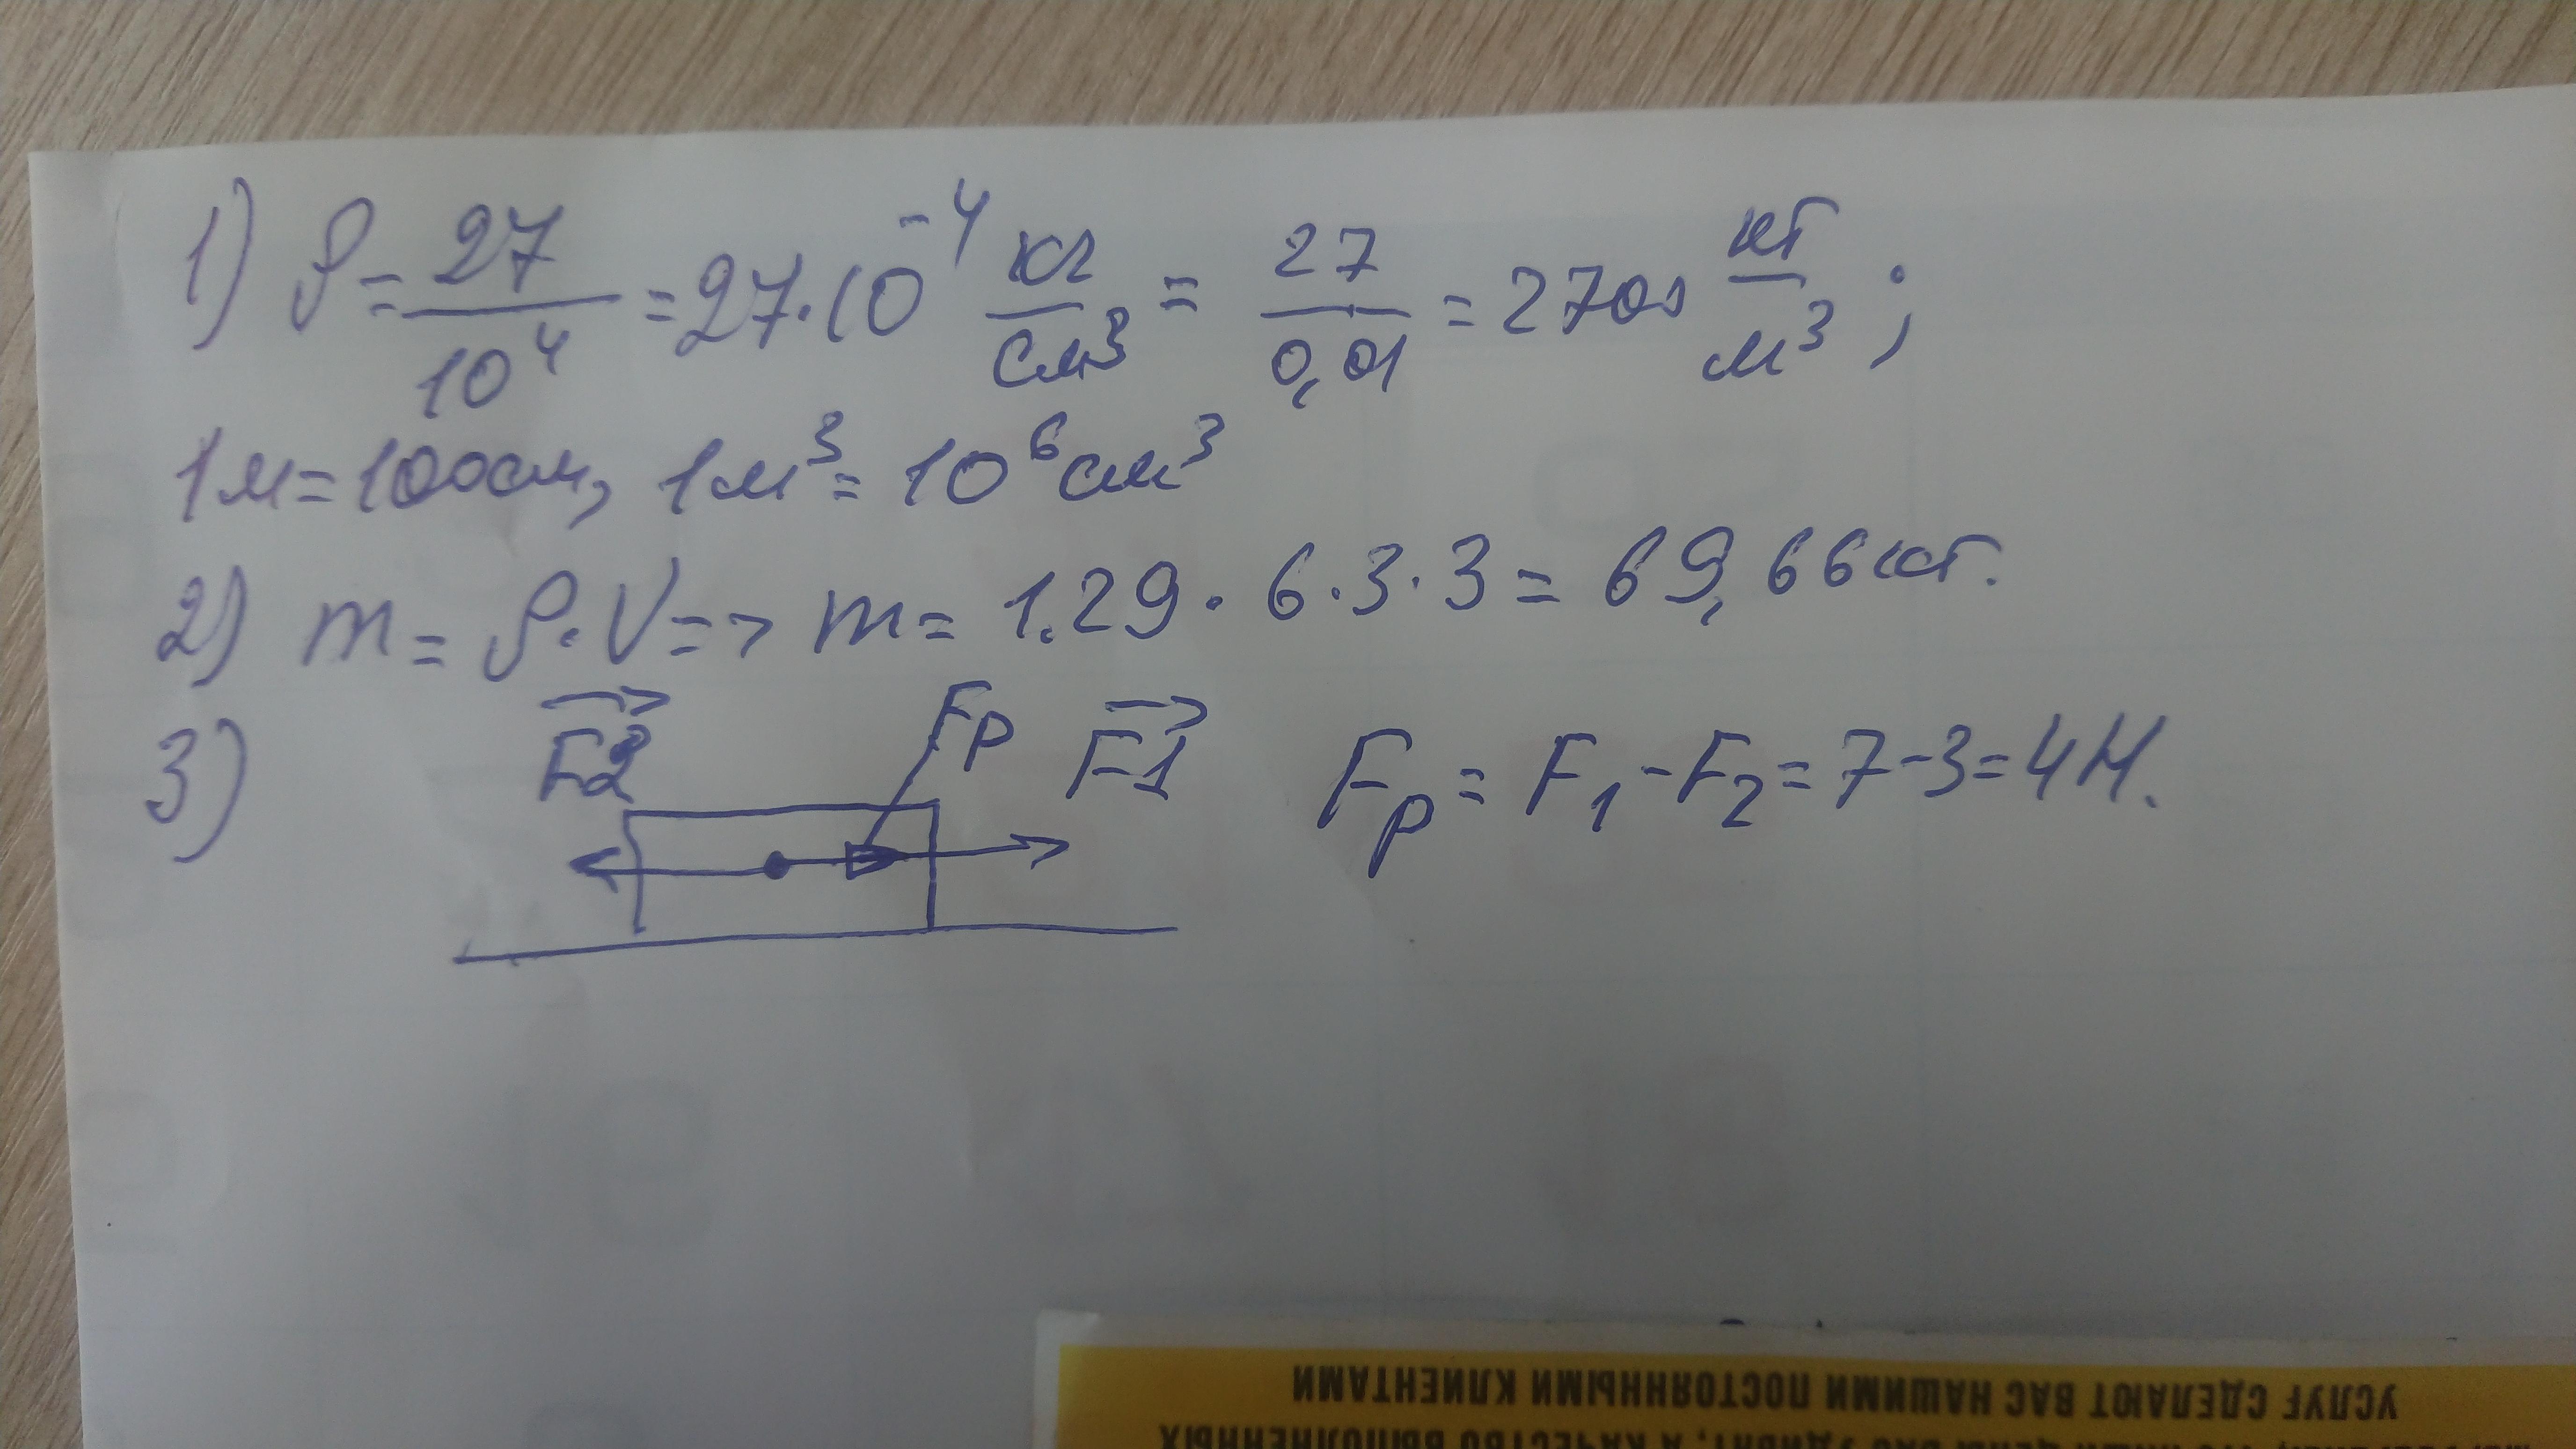 1) ρ = 27/10⁴ = 27·10⁻⁴ кг/см³ = 27/0,01 = 2700 кг/м³ ;
1м = 100см, 1м³ = 10⁶ см³
2) m = ρ·V => m = 1.29 · 6·3·3 = 69,66 кг.
3) F2 Fp F1 Fp = F₁ - F₂ = 7-3 = 4 Н.
УСЛУГ СДЕЛАЮТ ВАС НАШИМИ ПОСТОЯННЫМИ КЛИЕНТАМИ
А КАЧЕСТВО ВЫПОЛНЕННЫХ